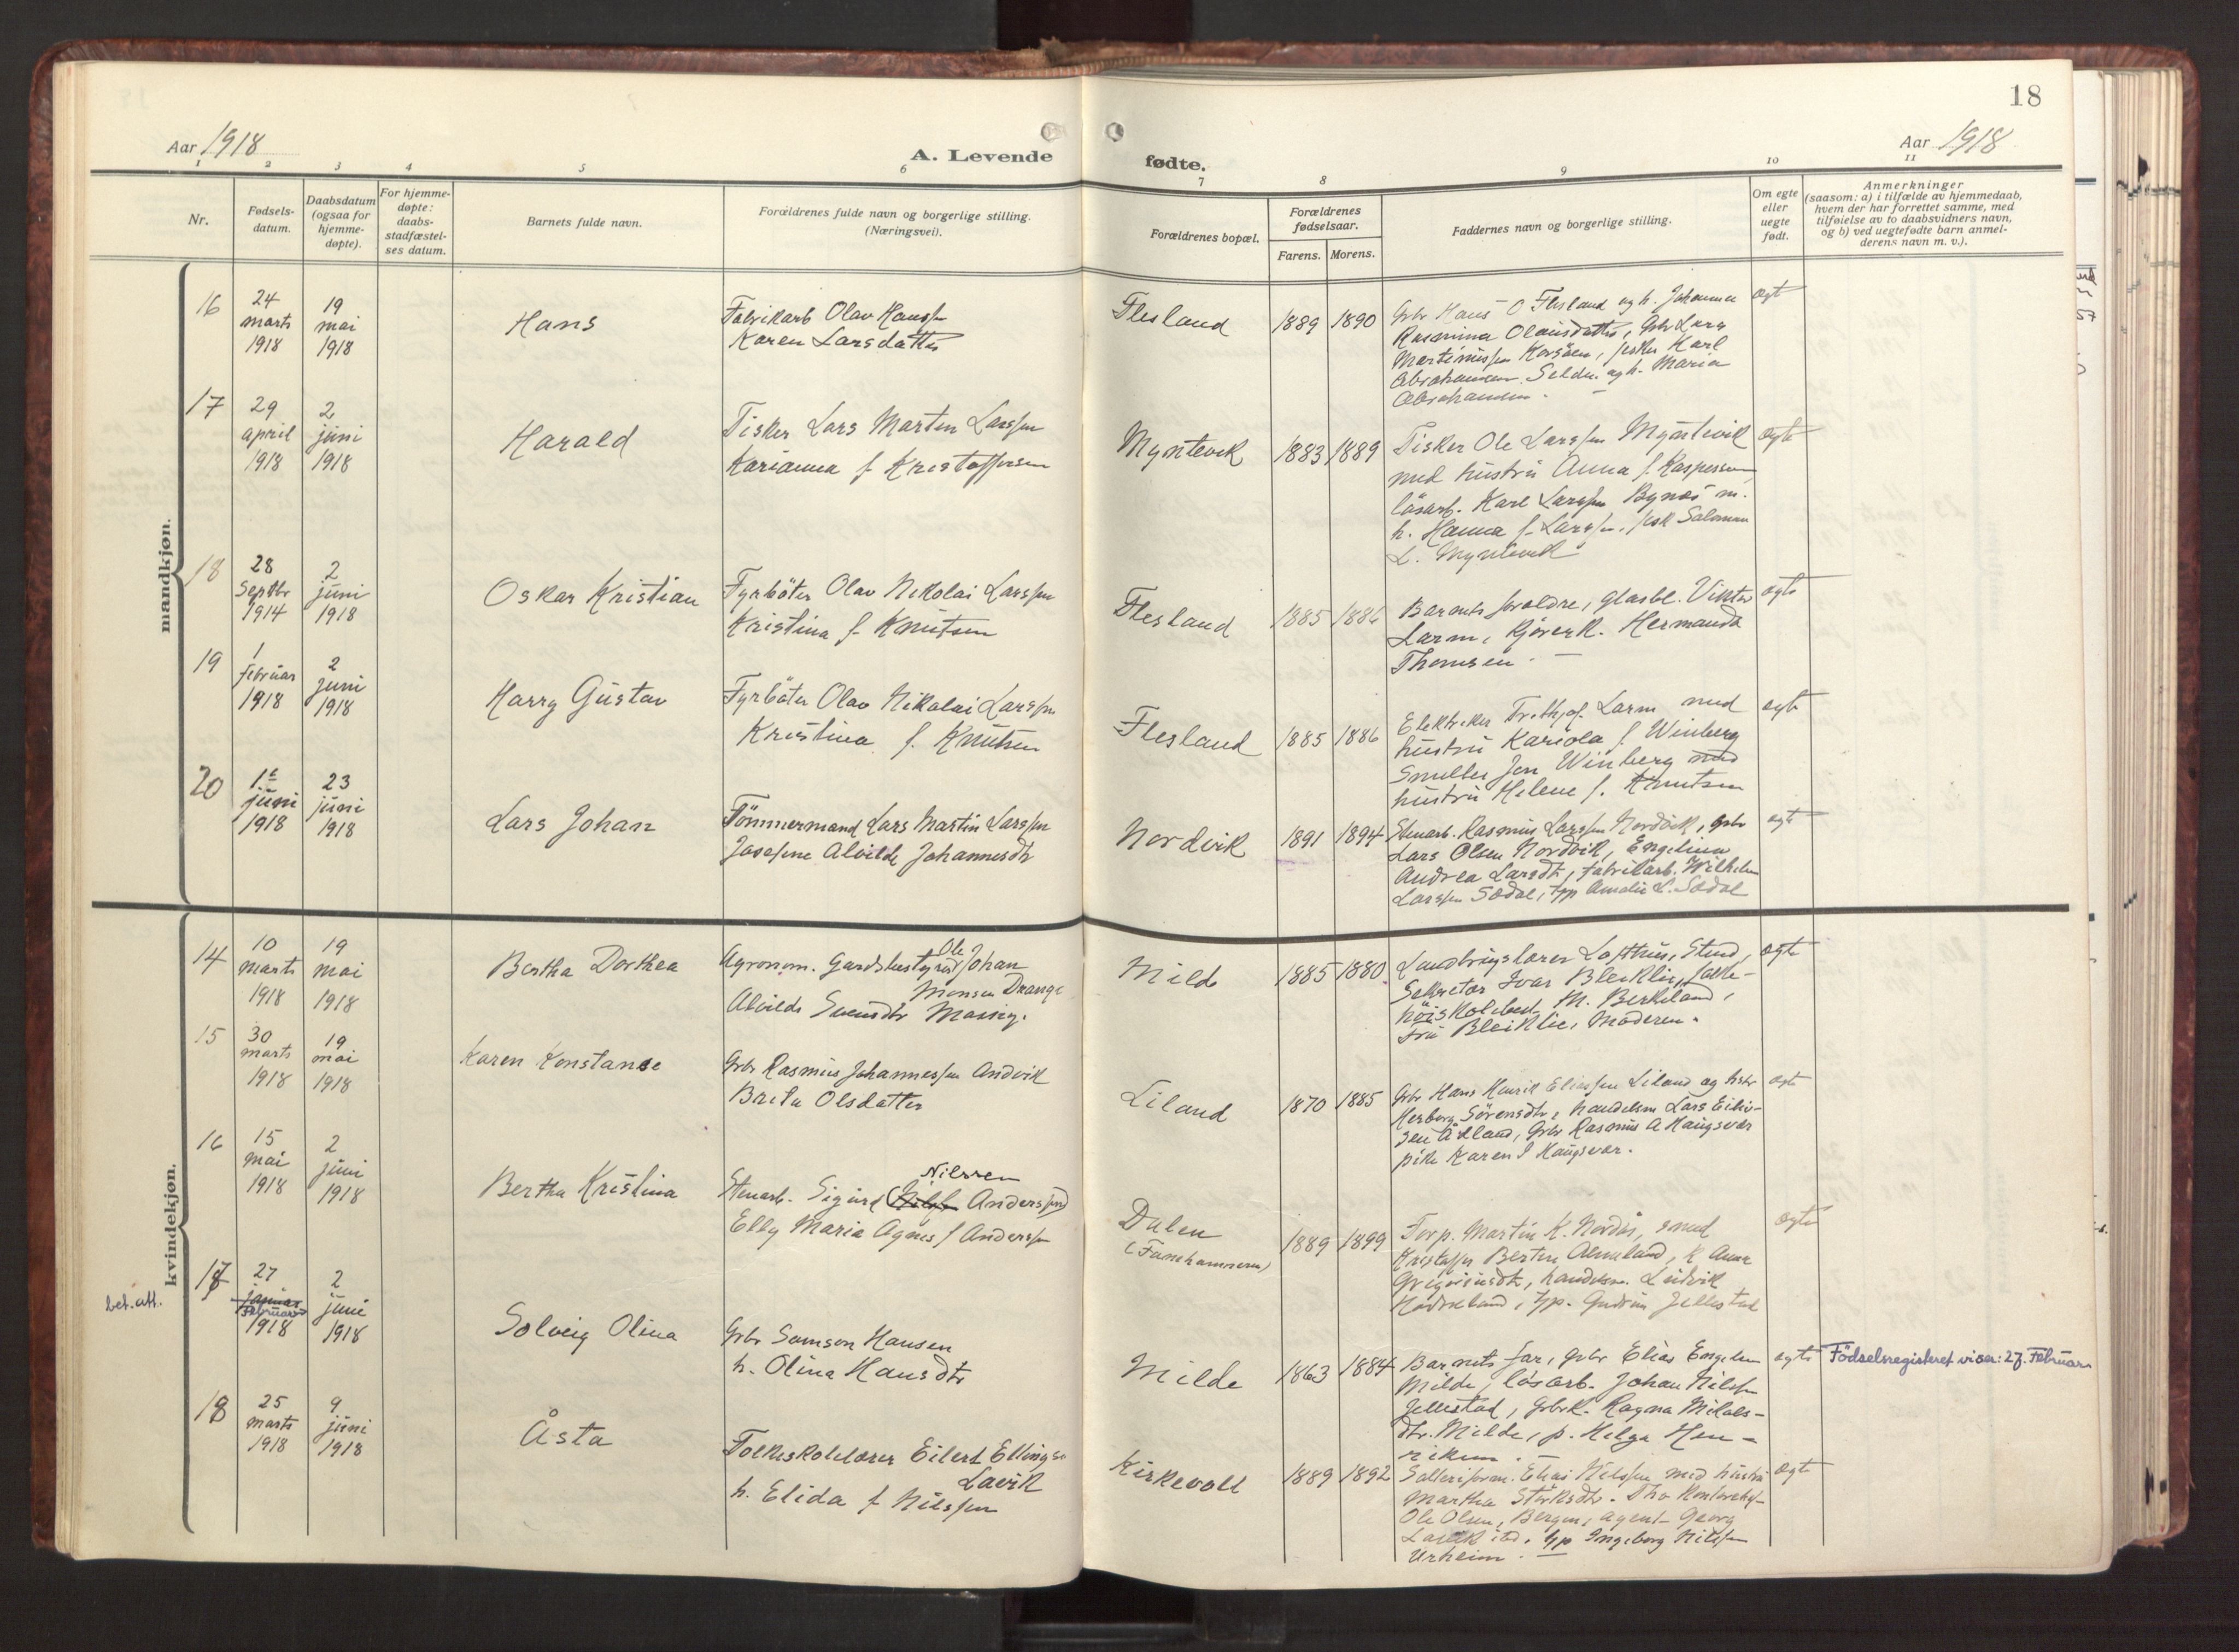 18
Aar 1918
A. Levende
fødte.
Aar 1918
1 2 3 4 5 6 7 8 9 10 11
Nr.
Fødsels-
datum.
Daabsdatum
(ogsaa for
hjemme-
døpte).
For hjemme-
døpte:
daabs-
stadfæstel-
ses datum.
Barnets fulde navn.
Forældrenes fulde navn og borgerlige stilling.
(Næringsvei).
Forældrenes bopæl.
Forældrenes
fødselsaar.
Farens. Morens.
Faddernes navn og borgerlige stilling.
Om egte
eller
uegte
født.
Anmerkninger
(saasom: a) i tilfælde av hjemmedaab,
hvem der har forrettet samme, med
tilføielse av to daabsvidners navn,
og b) ved uegtefødte barn anmel-
derens navn m. v.).
mandkjøn.
16
24
marts
1918
19
mai
1918
Hans
Fabrikarb Olav Hanssen
Karen Larsdatter
Flesland
1889 1890
Gbr Hans O Flesland og h. Johanna
Rasmina Olausdatter, Gbr Lars
Martinussen Korsöen, fisker Karl
Abrahamsen Selde. og h. Maria
Abrahamsen.
egt
17
29
april
1918
2
juni
1918
Harald
Fisker Lars Martin Larssen
Karianna f Kristoffersen
Myntevik
1883 1889
Fisker Ole Larssen Myntevik
med hustru Anna f. Kaspersen
lösarb. Karl Larssen Bynes m.
h. Hanna f. Larssen, fisk Salomon
L. Myntevik
egte
18
28
Septbr
1914
2
juni
1918
Oskar Kristian
Fyrböter Olav Nikolai Larssen
Kristina f. Knutsen
Flesland
1885 1886
Barnets foreldre, glasbl. Viktor
Larm, Kjöresk. Hermanda
Thomsen.
egte
19
1
februar
1918
2
juni
1918
Harry Gustav
Fyrböter Olav Nikolai Larssen
Kristina f. Knutsen
Flesland
1885 1886
Elektriker Frithjof Larm med
hustru Kariola f. Winberg
Smelter Jon Winberg med
hustru Helene f. Knutsen
egte
20
1ste
juni
1918
23
juni
1918
Lars Johan
Tömmermand Lars Martin Larssen
Josefine Alvilde Johannesdtr
Nordvik
1891 1894
Stenarb. Rasmus Larssen Nordvik, gbr
Lars Olsen Nordvik, Engelina
Andrea Larsdtr, fabrikarb. Wilhelm
Larssen Sædal, tjp Amalie L. Sædal
egte
kvindekjøn.
14
10
marts
1918
19
mai
1918
Bertha Dorthea
Agronom. Gardsbestyrer Ole Johan
Monsen Drange
Alvilde Svensdtr Massig.
Milde
1885 1880
Landbrugslærer Lofthus, Stend,
Sekretær Ivar Bleiklie, folke-
höiskolebest. M. Berkeland,
fru Bleiklie, Moderen.
egte
15
30
marts
1918
19
mai
1918
Karen Konstanse
Gbr Rasmus Johannessen Andvik
Brita Olsdatter
Liland
1870 1885
Gbr Hans Henrik Eliassen Liland og hstr
Herborg Sörensdtr, handelsm Lars Eiliv-
sen Ådland, Gbr Rasmus A Haugsvær
pike Karen I Haugsvær.
egte
16
15
mai
1918
2
juni
1918
Bertha Kristina
Nilssen
Stenarb. Sigurd (Nilss Anderssen)
Elly Maria Agnes f Anderssen
Dalen
(Fanehammeren)
1889 1899
Forp. Martin K. Nordås, smed
Kristoffer Berten Almeland, K Anna
Grigoriusdtr, handelsm. Ludvik
Hövdeland, tjp. Gudrun Jellestad
egte
bet. att.
17
27
januar
Februar
1918
2
juni
1918
Solveig Olina
Gbr Samson Hansen
h. Olina Hansdtr
Milde
1863 1884
Barnets far, gbr Elias Engelsen
Milde, lösarb. Johan Nilssen
Jellestad, gbrk. Ragna Nilals-
dtr. Milde, p. Helga Hen-
riksen.
egte
Födselsregisteret viser: 27. Februar
18
25
marts
1918
9
juni
1918
Åsta
Folkeskolelærer Eilert Ellingsen
Lavik
h. Elida f Nilssen
Kirkevoll
1889 1892
Salleriforv. Elias Nilssen med hustru
Martha Störksdtr. Tho
Ole Olsen, Bergen, agent Georg
Lavik ibd, tjp Ingeborg Nilssen
Urheim.
egte